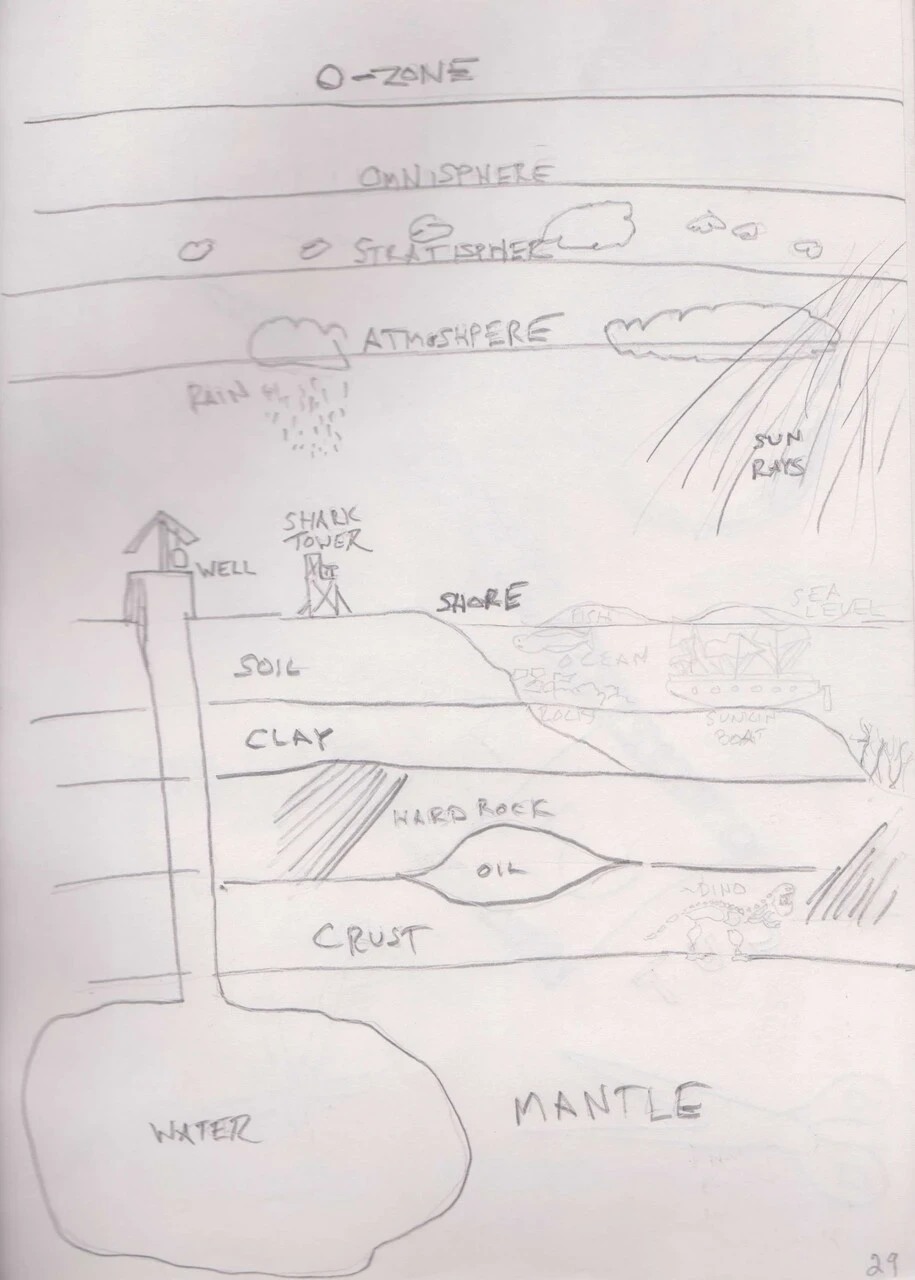 O-ZONE
OMNISPHERE
STRATISPHER
ATMOSHPERE
RAIN
SUN
RAYS
SHARK
TOWER
WELL
SHORE
SEA
LEVEL
FISH
OCEAN
SOIL
ROCKS
SUNKIN
BOAT
CLAY
HARD ROCK
OIL
DINO
CRUST
MANTLE
WATER
29